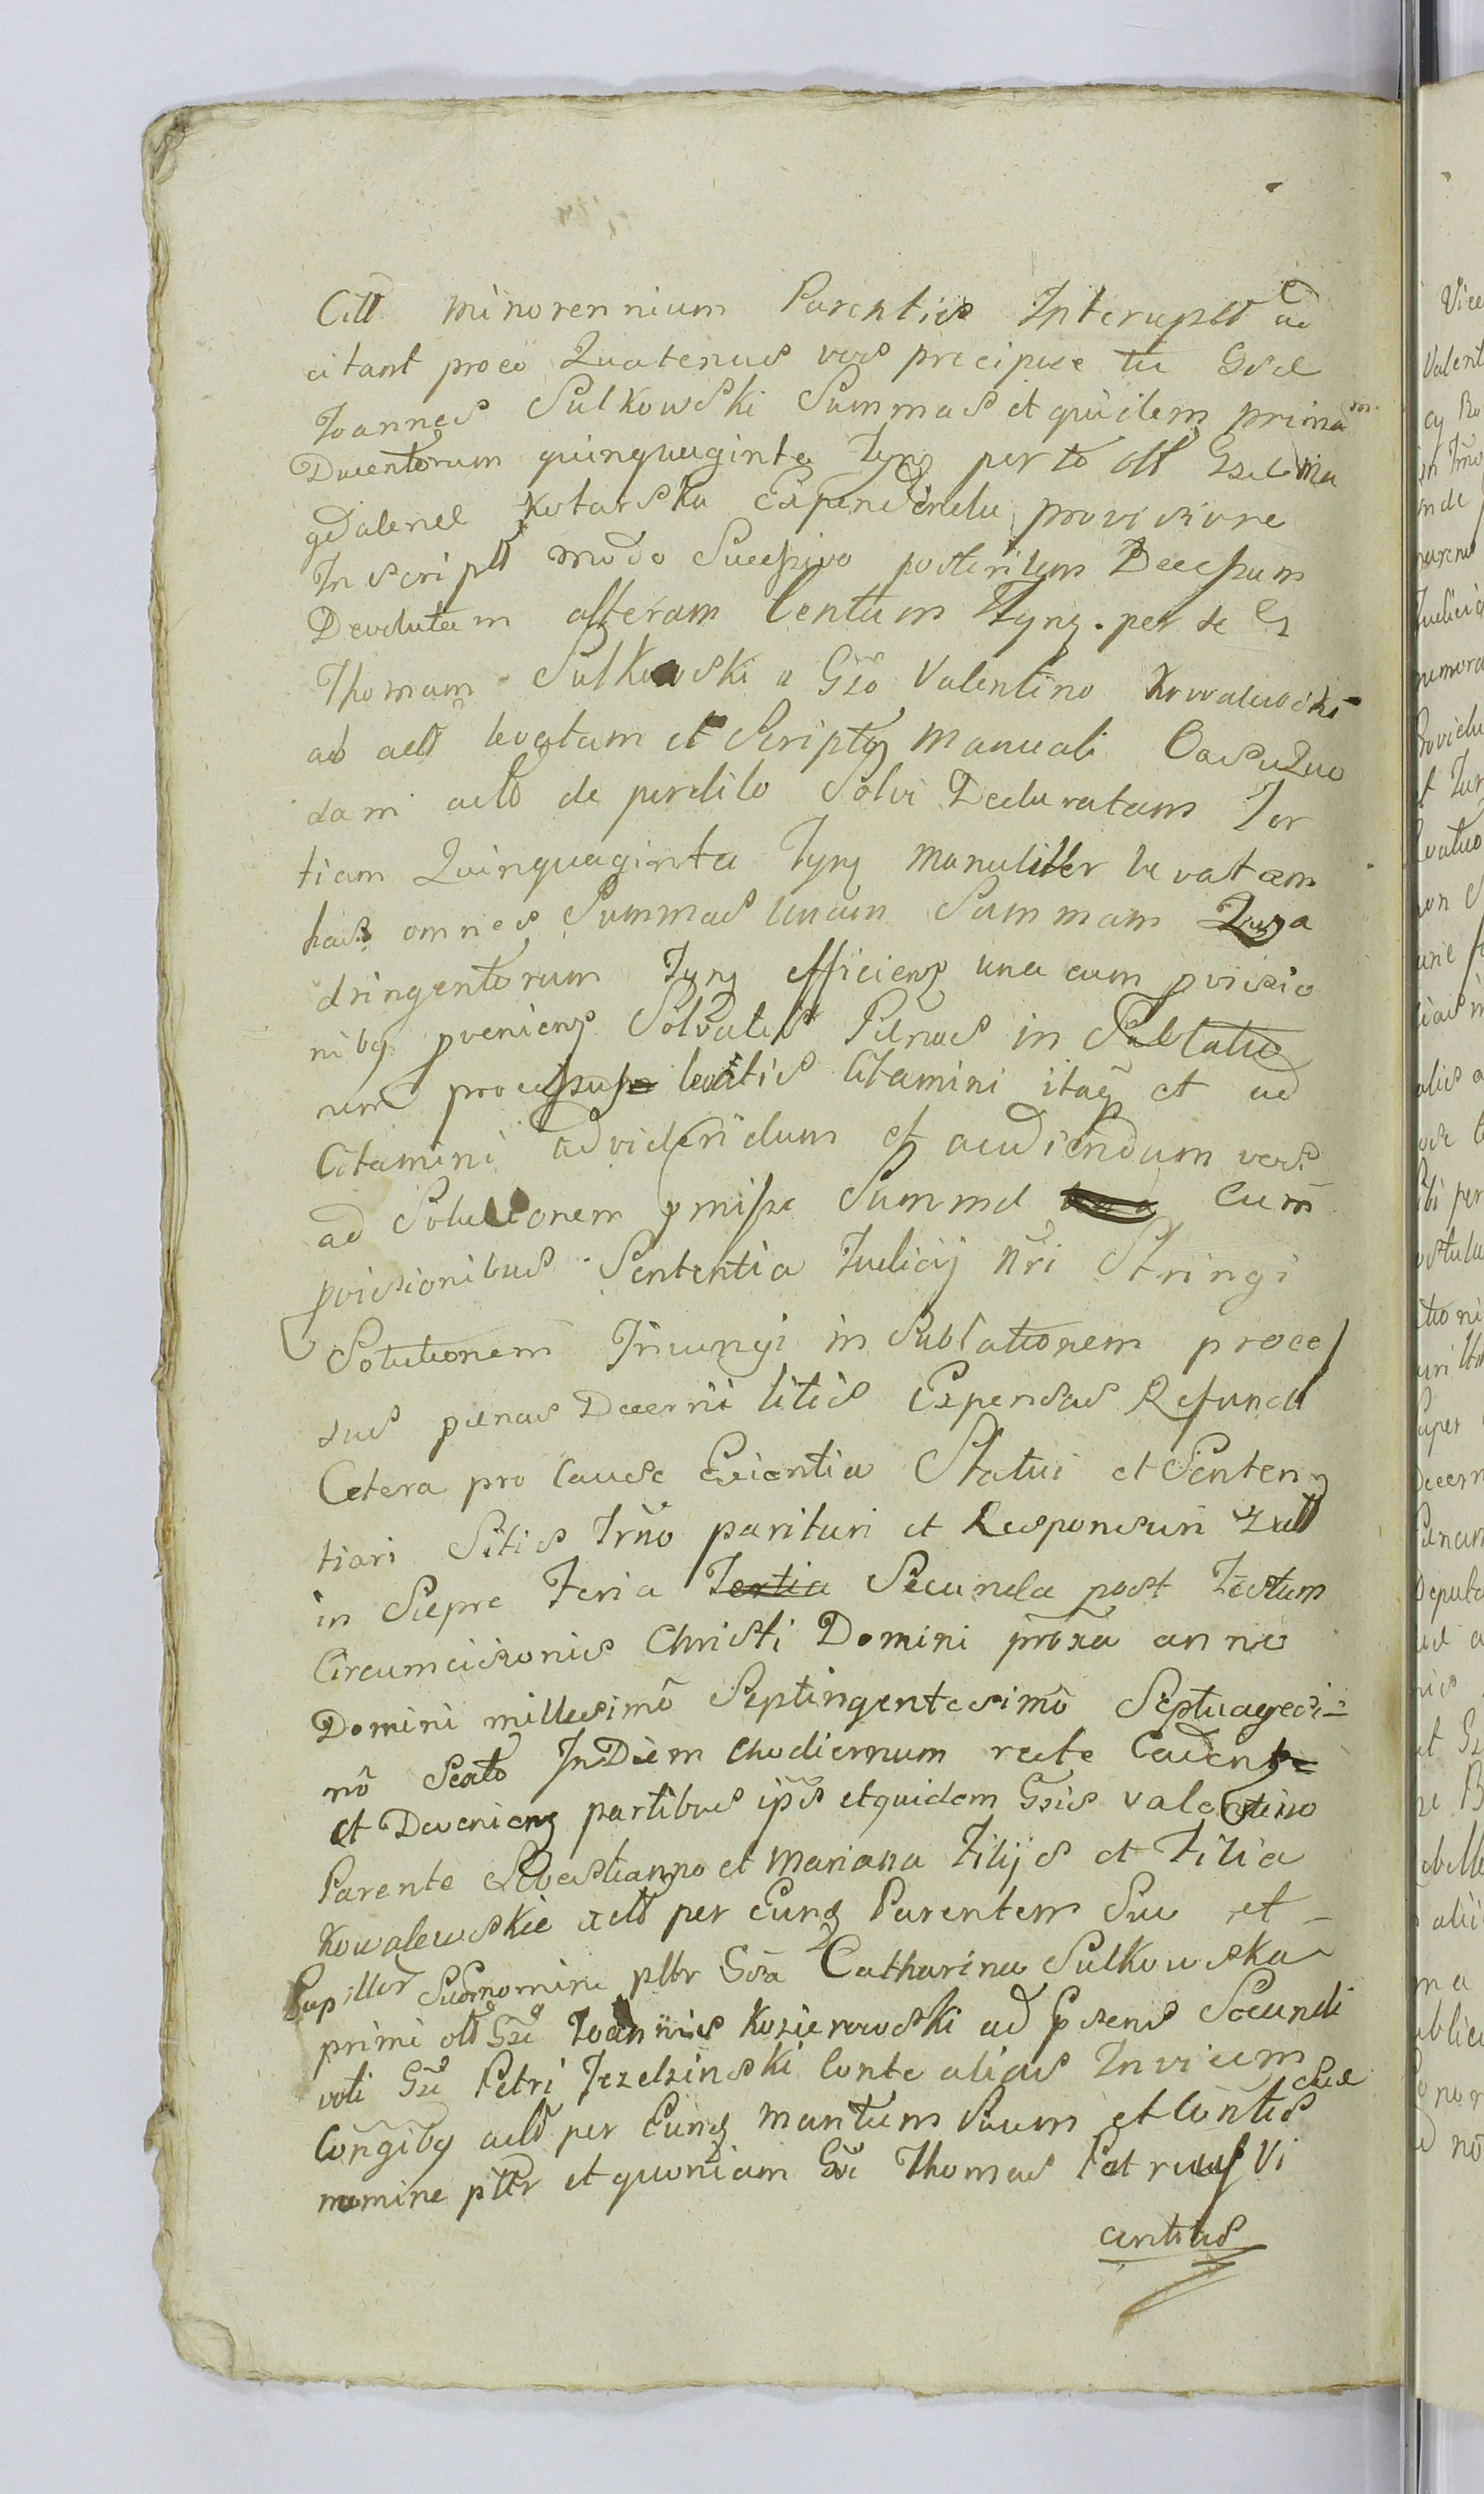 Citt minorennium Parentis Interuptt ac
citant proeo Quatenus vos precipue tu Gsde
Joannes Sulkowski Summas et quidem primam
Ducentorum quinquaginta Tynz per to olt Gsde Ma
gdalenae Kotarska Expendenda provisione
Inscriptt modo Successivo post eritum Decessum
Devolutam alteram Centum Tynz. per te G
Thomam Sulkowski a Gso Valentino Kowalewski
ad actt levatam et Scripto Manuali Casu Quo
dam actt de perdito Solvi Declaratam Ter
tiam Quinquaginta Tynz manuliter levatam
has omnes Summas unam Summam Qua
dringentorum Tynz efficienz una cum pvisio
niby pvenienz Solvatis Penas in Sublatio
nem processus leatis Citamini itaq et ad
Citamini ad videndum et audiendum vos
ad Solutionem pmisse Summe Cum
pvisionibus Sententia Judicij nri Stringi
Solutionem Iniungi in Sublationem proces
sus penas Decerni litis Expensas Refundi
Cetera pro Cause Exientia Statui et Senten
tiari Sitis Trno parituri et Responsuri
in Siepre Feria Tertia Secunda post Festum
Circumcisionis Christi Domini proxa anno
Domini millesimo Septingentesimo Septuagesi-
mo Sexto In Diem hodiernum recte Cadent
et Devenienz partibus ipis et quidem Gsis Valentino
Parente Sebastianno et Mariana Filijs et Filia
Kowalewskie actt per Eunz Parentem Suo et
Pupillor Suonomine pltr Gsa Catharina Sulkowska
primi olt Gsi Joannis Kozierowski ad psens Secundi
voti Gsi Petri Jezelsinski Conte alias Invicem
Congiby actt per Eunz maritum Suum et Contis Sue
nomine pltr et quoniam Gsi Thomas Patruus Vi
centius